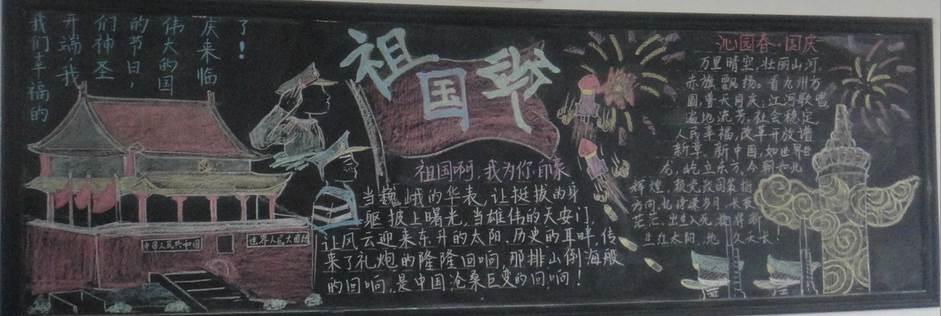 我们幸福的
开端,我
们神圣
的节日,
伟大的国
庆来临
了!
祖国颂
中国人民共和国
世界人民大团结
祖国啊,我为你自豪
当巍峨的华表,让挺拔的身
躯披上曙光,当雄伟的天安门,
让风云迎来东升的太阳,历史的耳畔,传
来了礼炮的隆隆回响,那排山倒海般
的回响,是中国沧桑巨变的回响!
沁园春·国庆
万里晴空,壮丽山河,
赤旗飘扬。看九州方
圆,普天同庆;江河歌唱
遍地流芳。社会稳定,
人民幸福,改革开放谱
新章。新中国,如世界巨
龙,屹立东方。今朝
辉煌,
方向,
茫茫,出生入死,
红太阳,地久天长!